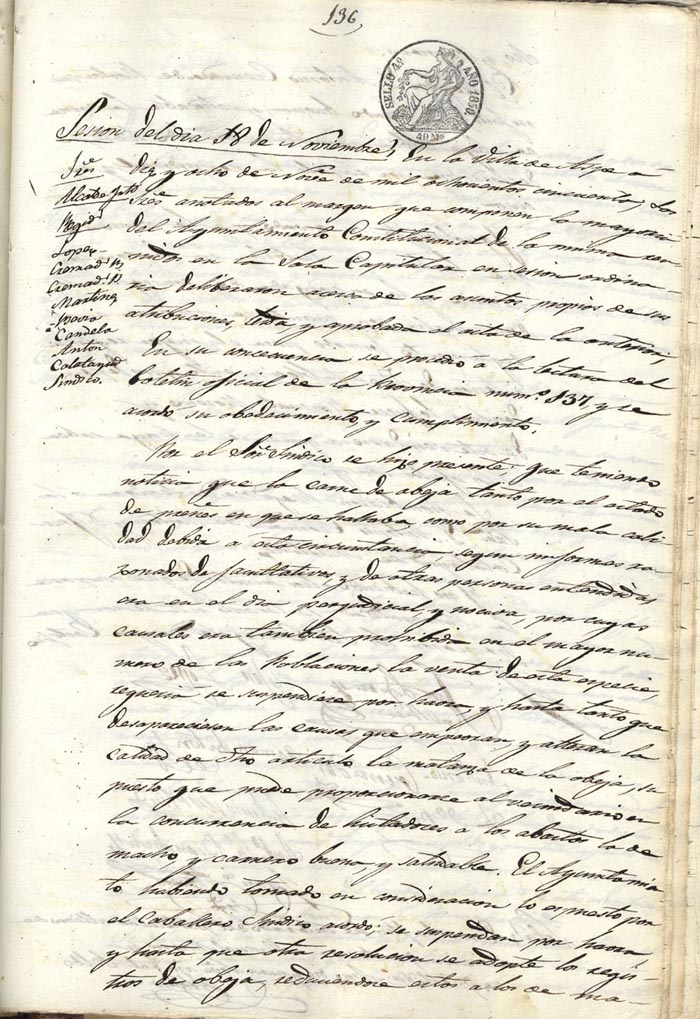 136,
SELLO 4º AÑO 1850.
40 Ms
Sesion del dia 18 de Noviembre,
Sres
Alcalde Jph
Regid
Lopez
Cremads
Cremads
Martinez
Pavia
Candela
Anton
Calatayud
Sindico.
En la Villa de Aspe a
diez y ocho de Nove de mil ochocientos cincuenta; los
Sres anotados al margen que componen la mayoria
del Ayuntamiento Constitucional de la misma reu-
nidos en la Sala Capitular en sesion ordina-
ria deliberaron acerca de los asuntos propios de sus
atribuciones, leida, y aprobada el acta de la anterior,
En su consecuencia se procedió á la lectura del
boletin oficial de la Provincia numº 137, y se
acordó su obedecimiento, y cumplimiento.
Por el Sor Sindico se hizo presente que teniendo
noticia que la carne de obeja tanto por el estado
de preñes en que se hallaba, como por su mala cali
dad debida a esta circunstancia segun informes ra
zonados de facultativos, y de otras personas entendidas
era en el dia perjudicial y nociva, por cuyas
causales era tambien prohibida en el mayor nu-
mero de las Poblaciones la venta de esta especie,
requeria se suspendiese por haora, y hasta tanto que
desapareciesen las causas que empeoran, y alteran la
calidad de dho articulo la matanza de la obeja, su
puesto que puede proporcionarse al vecindario en
la concurrencia de licitadores a los abastos la de
macho, y carnero buena, y saludable. El Ayuntamien
to habiendo tomado en consideracion lo espuesto por
el Caballero Sindico acordó; se suspendan por haora
y hasta que otra resolucion se adopte los regis-
tros de obeja, reduciendose estos a los de ma-